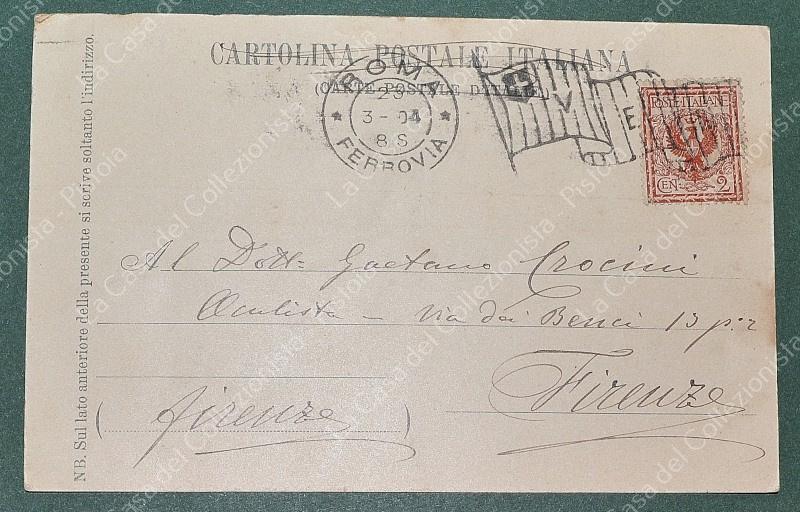 CARTOLINA POSTALE ITALIANA
(CARTE POSTALE D'ITALIE)
ROMA
23
3-04
8 S
FERROVIA
V E
POSTE ITALIANE
CEN. 2
Al Dott= Gaetano Crocini
Oculista - Via dei Benci 13 p.
Firenze
(firenze)
NB. Sul lato anteriore della presente si scrive soltanto l'indirizzo.
La Casa del Collezionista - Pistoia